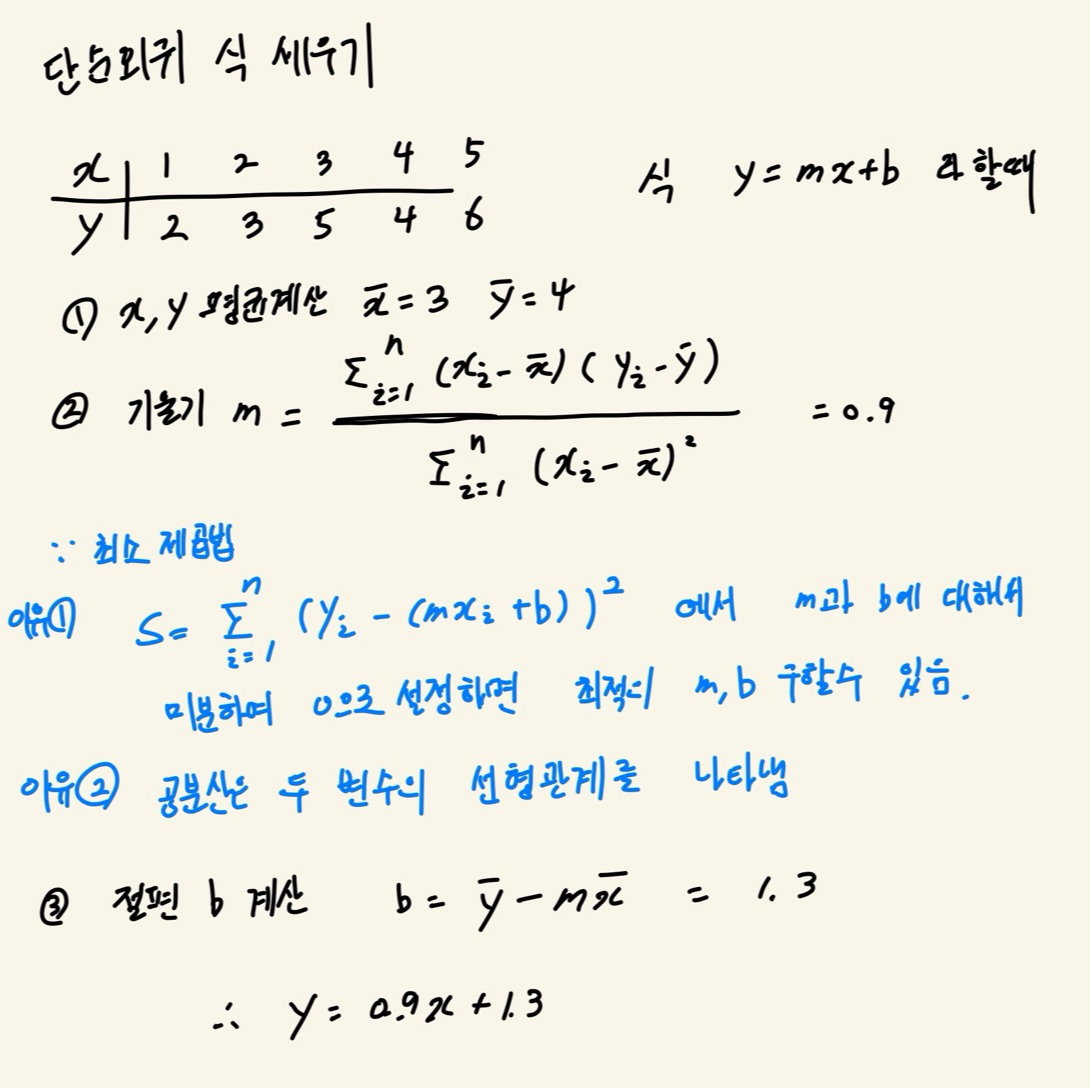 단순회귀 식 세우기
x | 1 2 3 4 5 식 y = mx+b 라 할때
y | 2 3 5 4 6
① x, y 평균계산 x̄ = 3 ȳ = 4
② 기울기 m = Σⁿᵢ₌₁ (xᵢ - x̄) ( yᵢ - ȳ ) / Σⁿᵢ₌₁ (xᵢ - x̄)² = 0.9
∵ 최소 제곱법
이유① S = Σⁿᵢ₌₁ (yᵢ - (mxᵢ + b))² 에서 m과 b에 대해서
미분하여 0으로 설정하면 최적의 m, b 구할수 있음.
이유② 공분산은 두 변수의 선형관계를 나타냄
③ 절편 b 계산 b = ȳ - mx̄ = 1.3
∴ y = 0.9x + 1.3